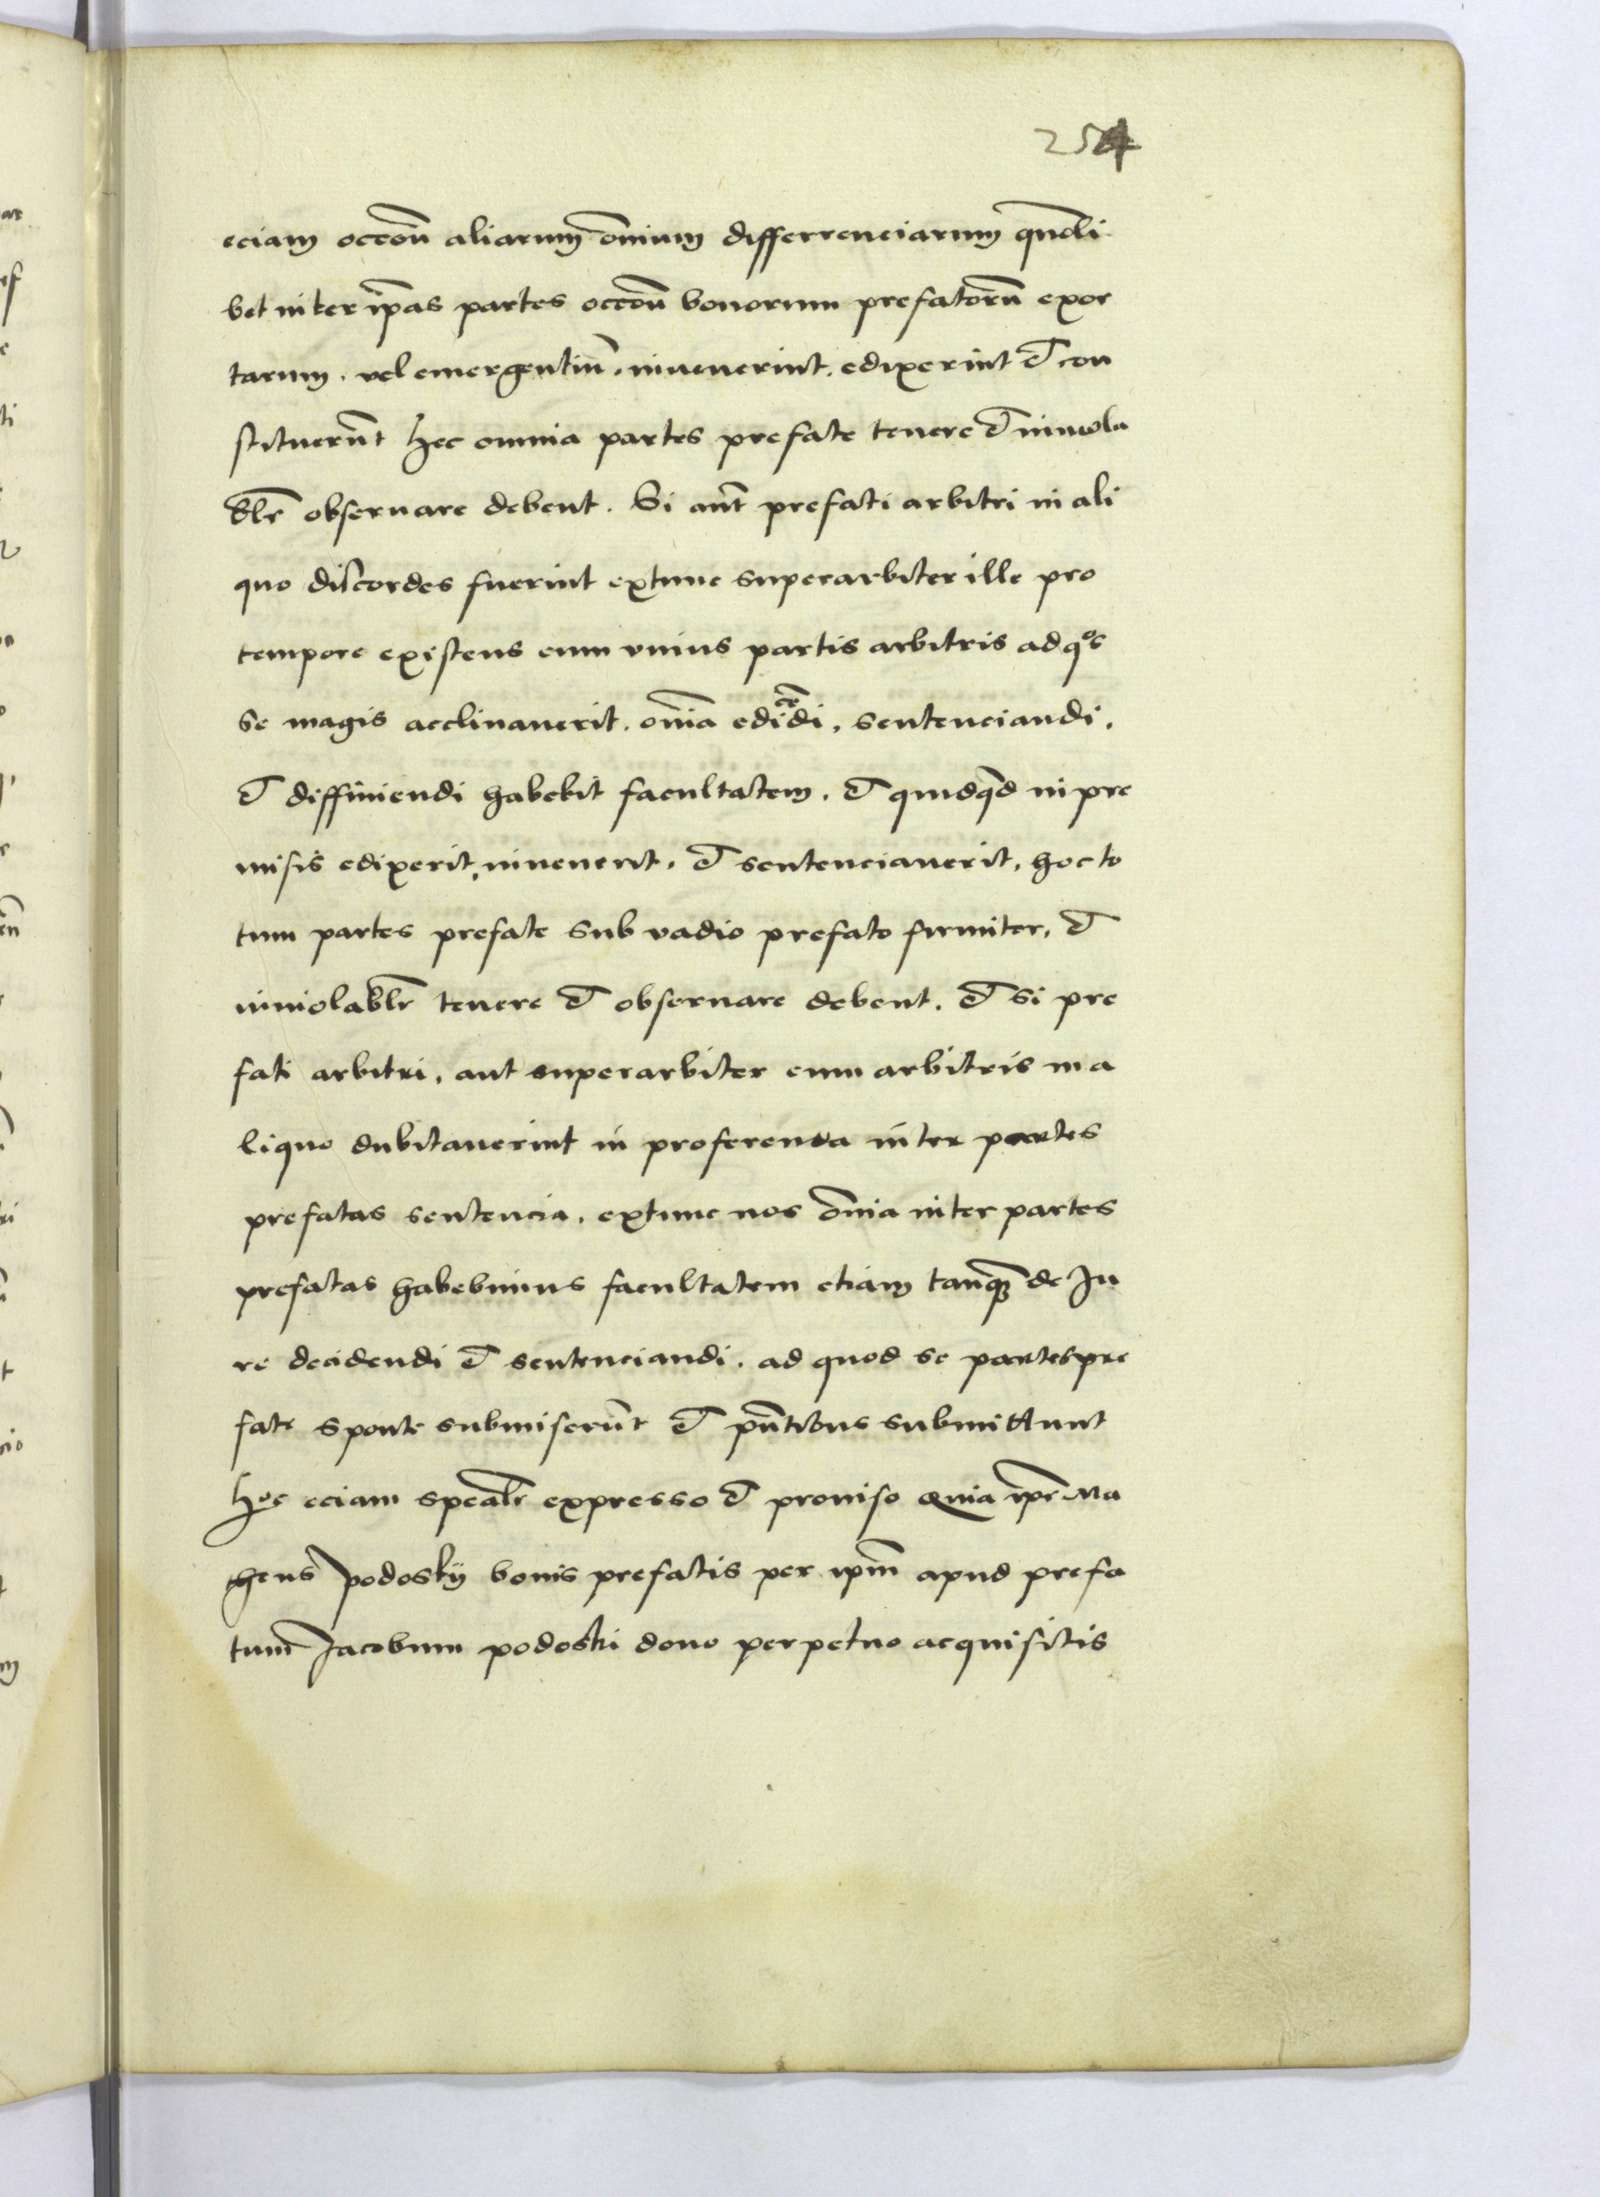 254
eciam occōn aliarum om̄ium differrenciarum qn̄oli
bet inter ip̄as partes occōn bonorum prefatorū exor
tarum. vel emergentiū. invenerint. edixerint et con
stituerūt hec omnia partes prefate tenere et inviola
bl̄r observare debent. Si aut̄ prefati arbitri in ali
quo discordes fuerint extunc superarbiter ille pro
tempore existens cum unius partis arbitris ad qos
se magis acclinaverit. om̄ia edicēdi, sentenciandi.
et diffiniendi habebit facultatem. et quidqd̄ in pre
misis edixerit, invenerit. et sentenciaverit, hoc to
tum partes prefate sub vadio prefato firmiter, et
inviolabl̄r tenere et observare debent. et si pre
fati arbitri, aut superarbiter cum arbitris in a
liquo dubitaverint in proferenda inter partes
prefatas sentencia. extunc nos om̄ia inter partes
prefatas habebimus facultatem etiam tanq̄ de Ju
re decidendi et sentenciandi. ad quod se partes pre
fate sponte submiserūt et pn̄tibus submittunt
hoc eciam spēalr̄ expresso et proviso Quia ip̄e Ma
theus podosky bonis prefatis per ipm̄ apud prefa
tum Jacobum podoski dono perpetuo acquisitis